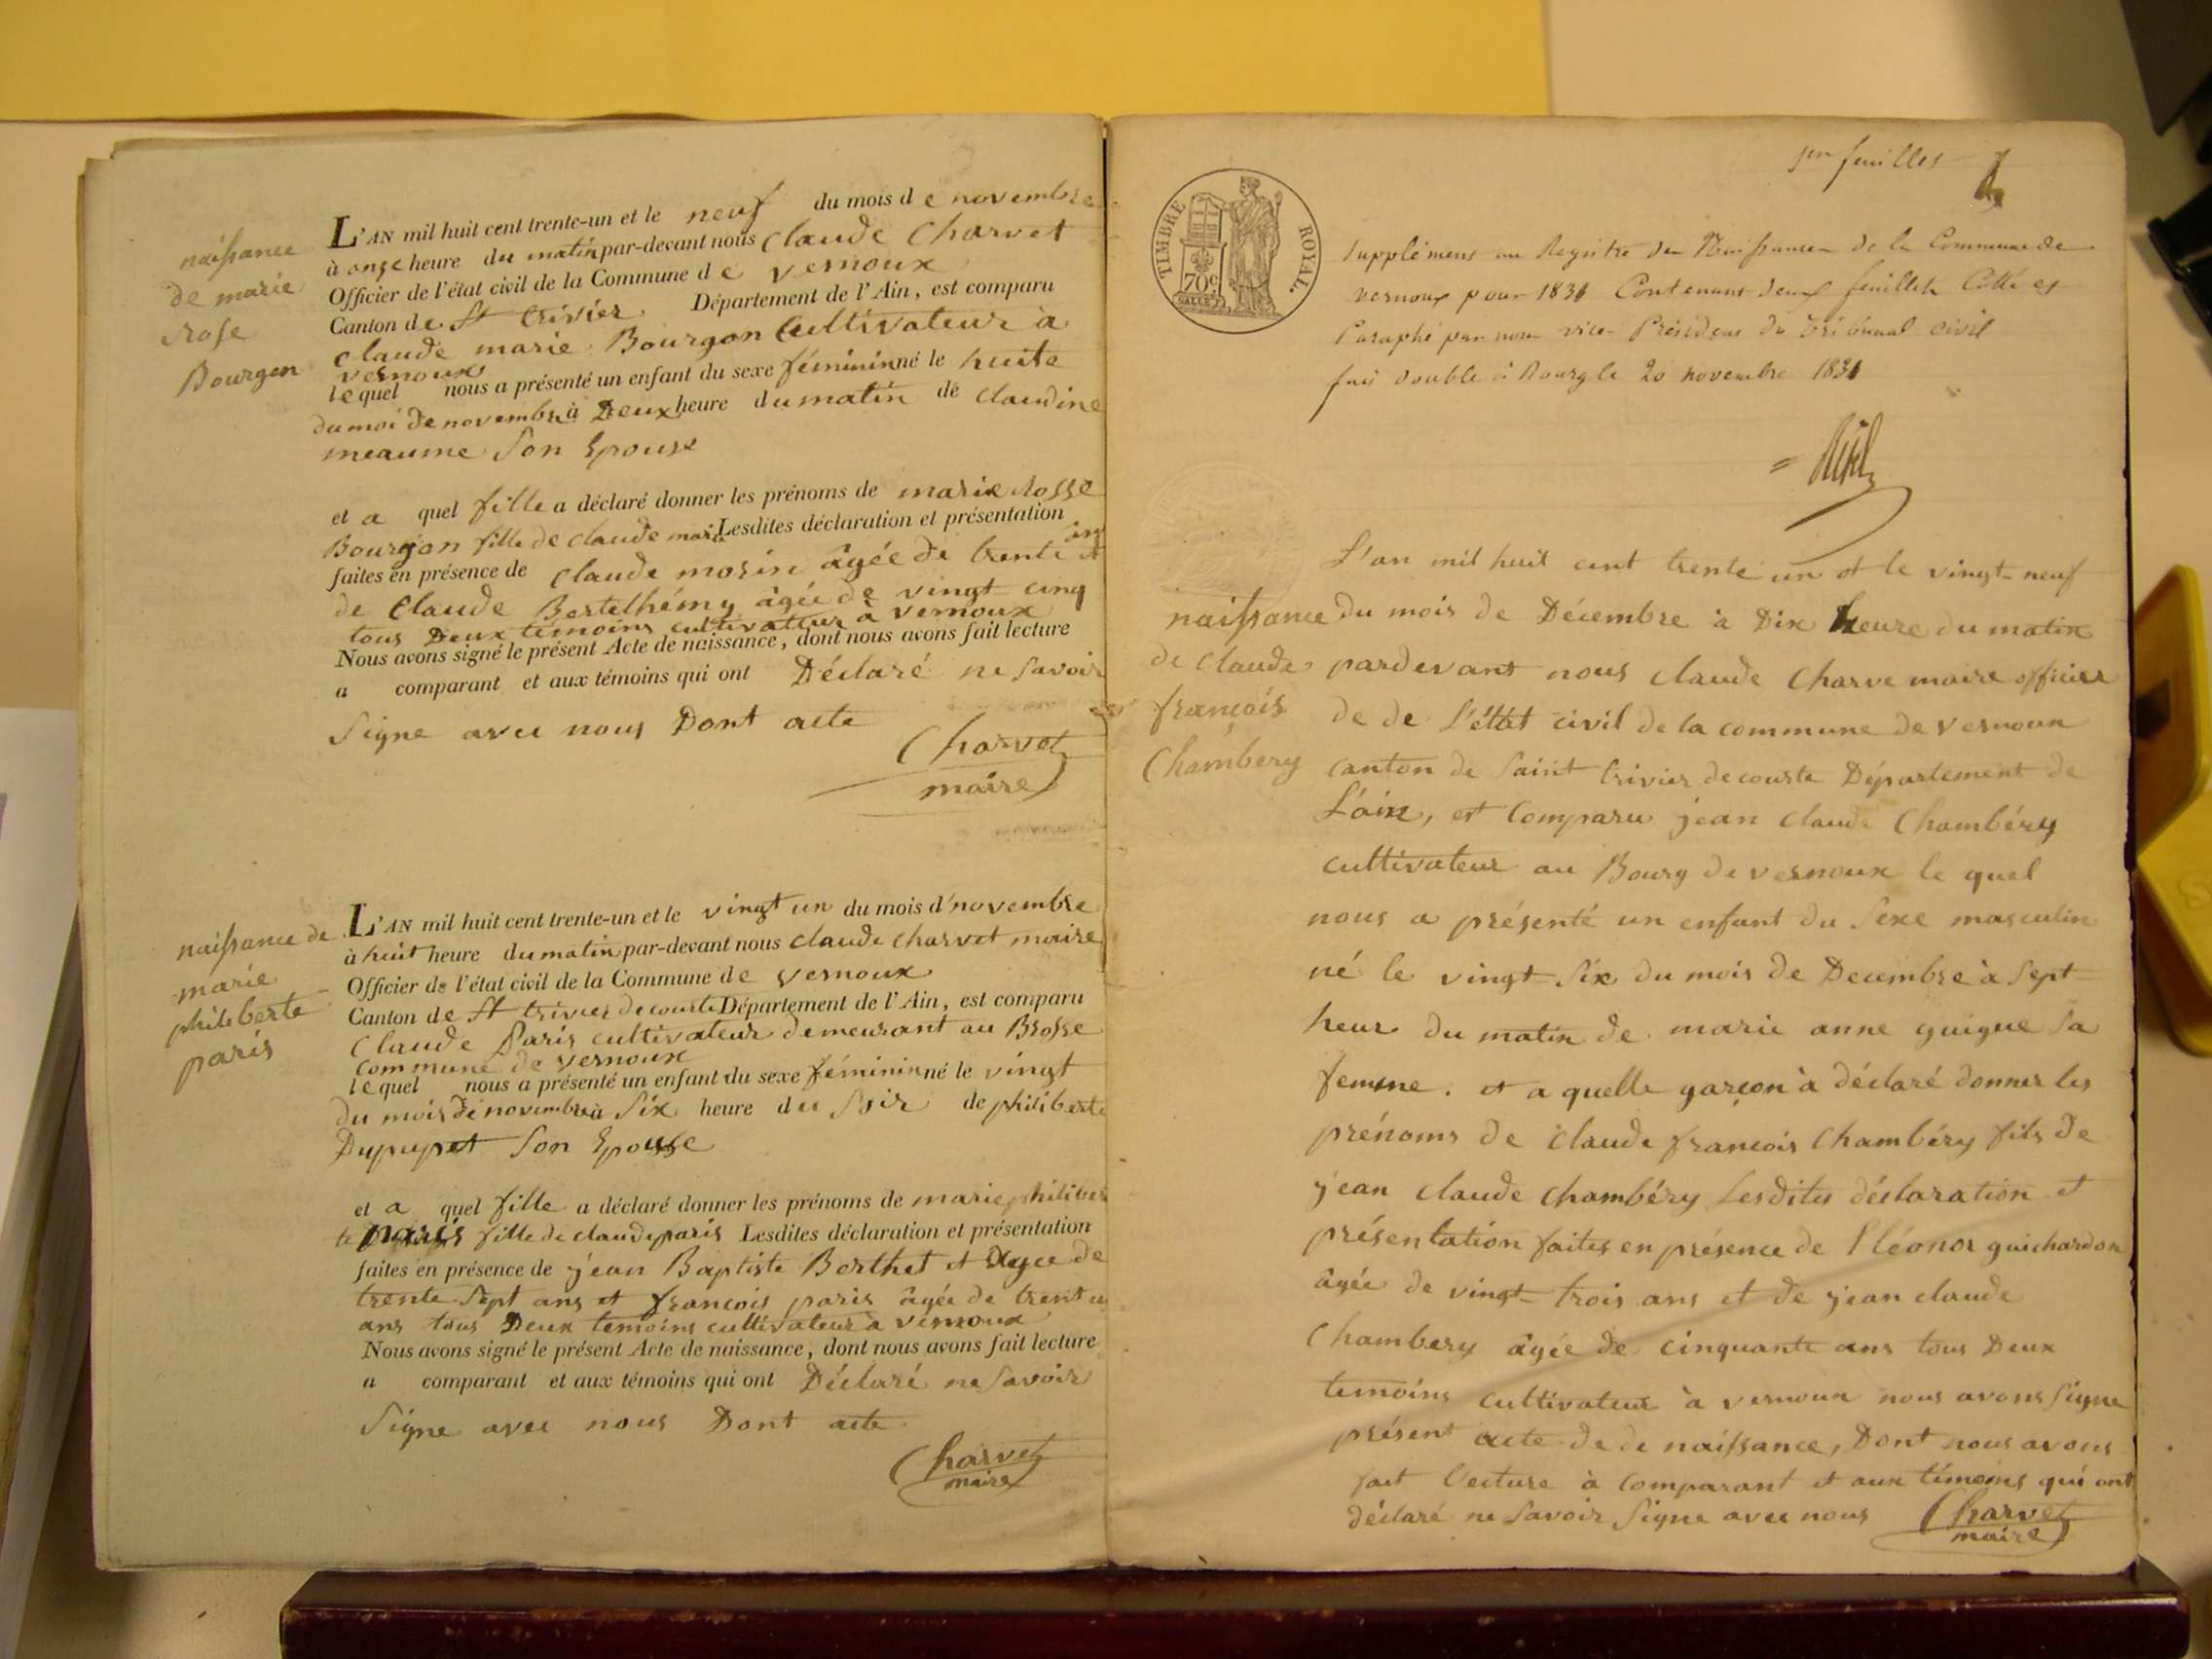 naissance
de marie
rose
Bourgon
L'AN mil huit cent trente-un et le neuf du mois de novembre
à onze heure du matin par-devant nous Claude Charvet
Officier de l'état civil de la Commune de Vernoux
Canton de St trivier Département de l'Ain, est comparu
claude marie Bourgon Cultivateur à
vernoux
lequel nous a présenté un enfant du sexe féminin né le huite
du moi de novembre à Deux heure du matin de claudine
meaume son Epouse
et a quel fille a déclaré donner les prénoms de marie rosse
Bourgon fille de claude marie Lesdites déclaration et présentation
faites en présence de claude morin âgée de trente ans et
de Claude Bertelhémy âgée de vingt cinq
tous Deux témoins cultivateur à vernoux
Nous avons signé le présent Acte de naissance, dont nous avons fait lecture
a comparant et aux témoins qui ont Déclaré ne savoir
Signe avec nous Dont acte
Charvet
maire
naissance de
marie
philiberte
paris
L'AN mil huit cent trente-un et le vingt un du mois d'novembre
à huit heure du matin par-devant nous claude charvet maire
Officier de l'état civil de la Commune de Vernoux
Canton de St trivier de courte Département de l'Ain, est comparu
Claude Paris cultivateur demeurant au Brosse
commune de vernoux
lequel nous a présenté un enfant du sexe féminin né le vingt
du mois de novembre à Six heure du Soir de philiberte
Dupupet son Epouse
et a quel fille a déclaré donner les prénoms de marie philiber
te paris fille de claude paris Lesdites déclaration et présentation
faites en présence de jean Baptiste Berthet et Agee de
trente Sept ans et françois paris âgée de trente
ans tous Deux temoins cultivateur à vernoux
Nous avons signé le présent Acte de naissance, dont nous avons fait lecture
a comparant et aux témoins qui ont Déclaré ne Savoir
Signe avec nous Dont acte
Charvet
maire
feuilles
TIMBRE ROYAL.
70c.
Supplément au Registre des Naissances de la Commune de
vernoux pour 1831 Contenant deux feuillets Cotté et
Paraphé par nous vice-Président du Tribunal civil
fait double à Bourg le 20 novembre 1831
naissance
de claude
françois
Chambery
L'an mil huit cent trente un et le vingt-neuf
du mois de Décembre à Dix heure du matin
pardevant nous claude Charve maire officier
de de L'état civil de la commune de vernoux
canton de Saint trivier de courte Département de
L'ain, est Comparu jean claude Chambéry
cultivateur au Bourg de vernoux le quel
nous a présenté un enfant du Sexe masculin
né le vingt-Six du mois de Decembre à Sept
heur du matin de marie anne guigue Sa
femme. et a quelle garçon à déclaré donner les
prénoms de claude françois Chambéry fils de
jean claude Chambéry Lesdites déclaration et
présentation faites en présence de Eléonor guichardon
âgée de vingt-trois ans et de jean claude
Chambery âgée de cinquante ans tous Deux
temoins cultivateur à vernoux nous avons Signe
présent acte de de naissance, Dont nous avons
fait Lecture à Comparant et aux témoins qui ont
déclaré ne Savoir Signe avec nous
Charvet
maire